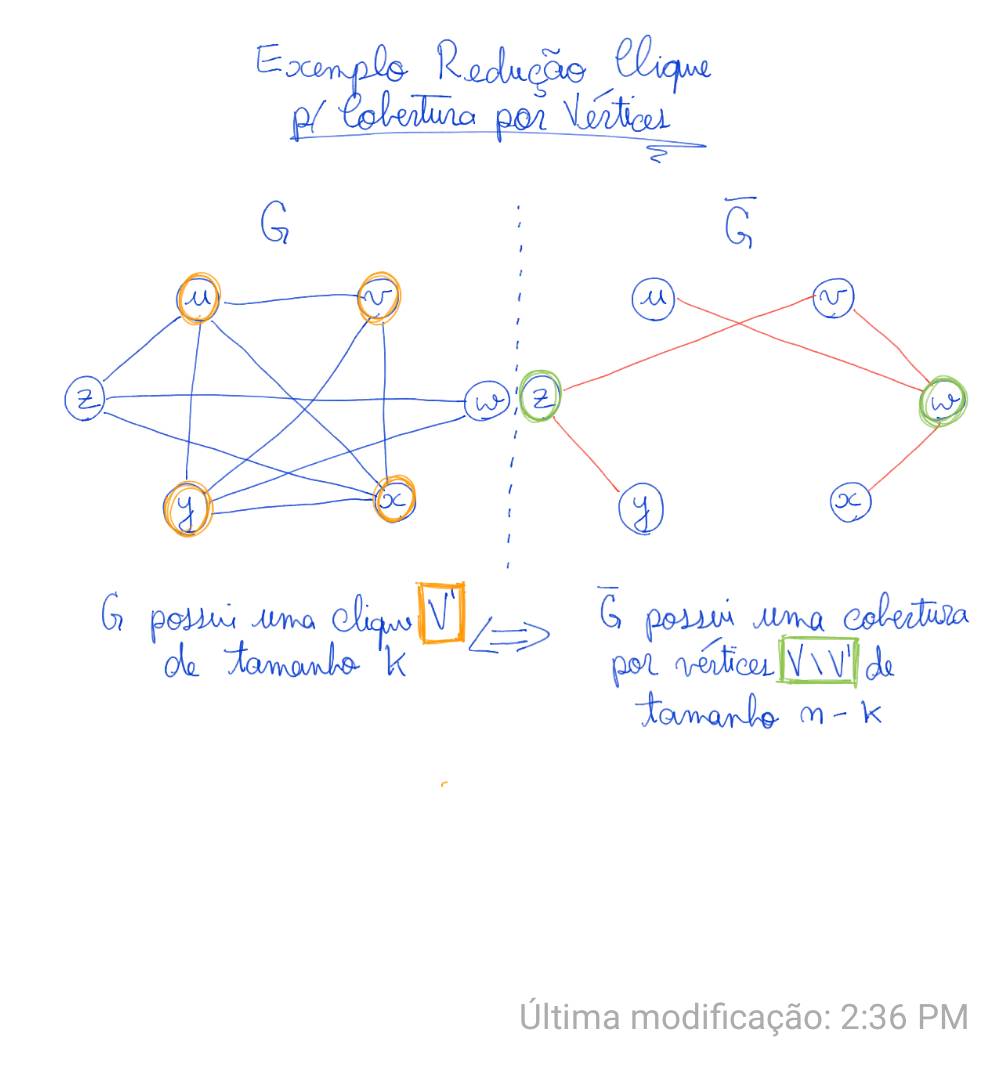 Exemplo Redução Clique
p/ Cobertura por Vértices
G
G̅
u
v
z
w
y
x
u
v
z
w
y
x
G possui uma clique V'
de tamanho k
<=>
G̅ possui uma cobertura
por vértices V\V' de
tamanho n-k
Última modificação: 2:36 PM